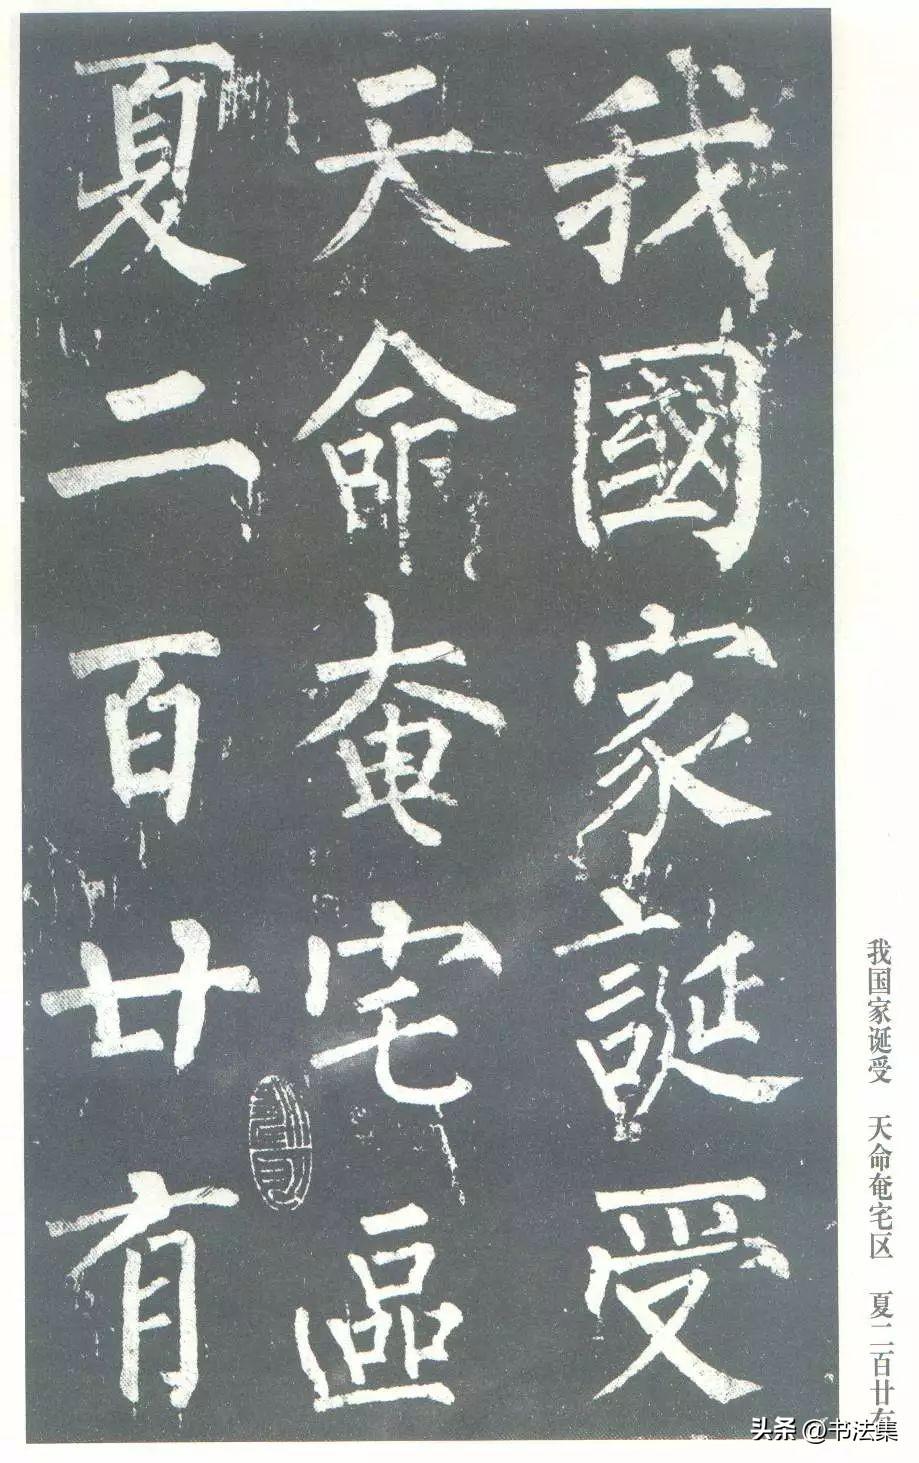 我國家誕受
天命奄宅區
夏二百廿有
我国家诞受 天命奄宅区 夏二百廿有
头条 @书法集